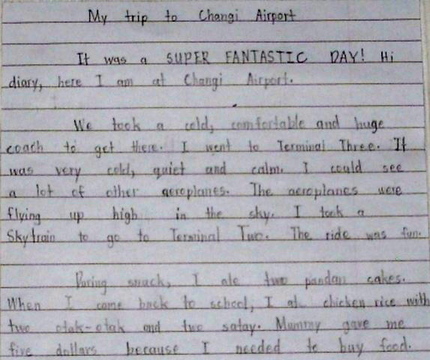 My trip to Changi Airport
It was a SUPER FANTASTIC DAY! Hi
diary, here I am at Changi Airport.
We took a cold, comfortable and huge
coach to get there. I went to Terminal Three. It
was very cold, quiet and calm. I could see
a lot of other aeroplanes. The aeroplanes were
flying up high in the sky. I took a
Skytrain to go to Terminal Two. The ride was fun.
During snack, I ate two pandan cakes.
When I came back to school, I ate chicken rice with
two otak-otak and two satay. Mummy gave me
five dollars because I needed to buy food.